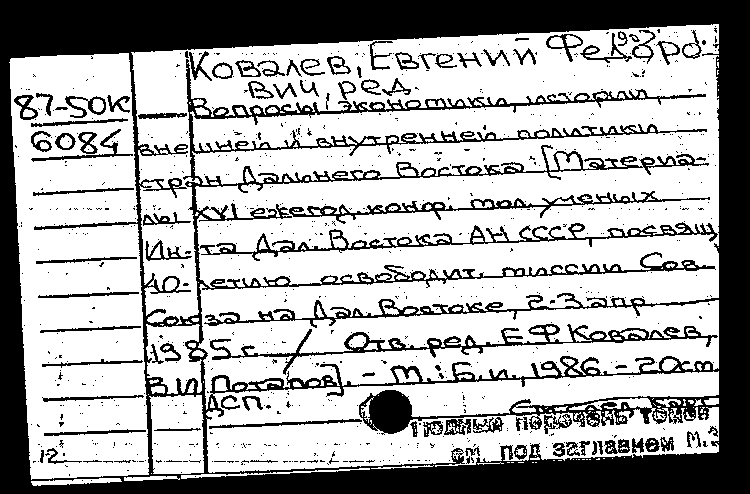 Ковалев, Евгений Федоро-
вич, ред.
87-50К Вопросы экономики, истории,
6084 внешней и внутренней политики
стран Дальнего Востока: [Материа-
лы XVI ежегод. конф. мол. ученых
Ин-та Дал. Востока АН СССР, посвящ.
40-летию освободит. миссии Сов.
Союза на Дал. Востоке, 2-3 апр.
1985 г. / Отв. ред. Е.Ф. Ковалев,
В.И Потапов]. - М.: Б.и., 1986. - 20см.
ДСП.
перечень томов
см. под заглавием М.З
12